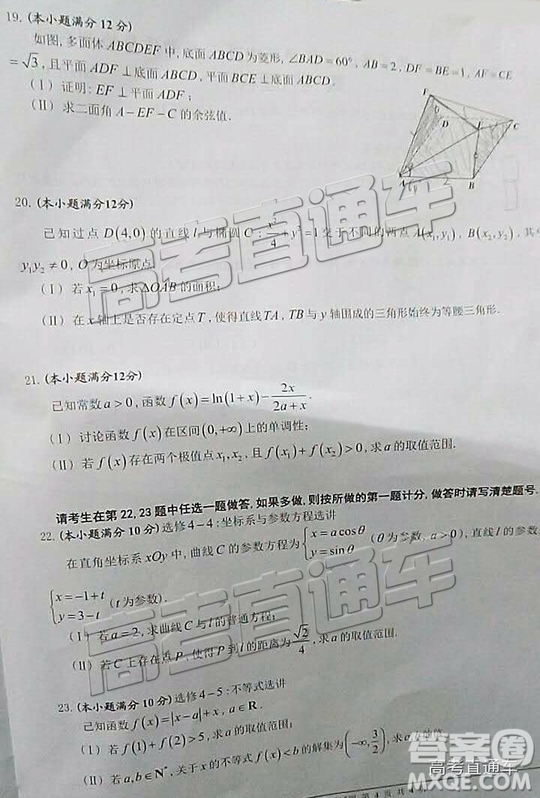 19. (本小题满分12分)
如图, 多面体 ABCDEF 中, 底面 ABCD 为菱形, ∠BAD=60°, AB=2, DF=BE=1, AF=CE
=√3, 且平面 ADF⊥底面 ABCD, 平面 BCE⊥底面 ABCD.
(Ⅰ) 证明: EF⊥平面 ADF;
(Ⅱ) 求二面角 A-EF-C 的余弦值.
D
C
A
B
20. (本小题满分12分)
已知过点 D(4,0) 的直线 l 与椭圆 C: x²/4+y²=1 交于不同的两点 A(x₁,y₁), B(x₂,y₂), 其中
y₁y₂≠0, O为坐标原点.
(Ⅰ) 若 x₁=0, 求△OAB 的面积;
(Ⅱ) 在 x 轴上是否存在定点 T, 使得直线 TA, TB 与 y 轴围成的三角形始终为等腰三角形.
21. (本小题满分12分)
已知常数 a>0, 函数 f(x)=ln(1+x)-2x/(2a+x).
(Ⅰ) 讨论函数 f(x) 在区间 (0,+∞) 上的单调性;
(Ⅱ) 若 f(x) 存在两个极值点 x₁,x₂, 且 f(x₁)+f(x₂)>0, 求 a 的取值范围.
请考生在第 22, 23 题中任选一题做答, 如果多做, 则按所做的第一题计分, 做答时请写清楚题号.
22. (本小题满分 10分) 选修 4-4: 坐标系与参数方程选讲
在直角坐标系 xOy 中, 曲线 C 的参数方程为 {x=a cosθ y=sinθ (θ 为参数), 直线 l 的参数方程为
{x=-1+t y=3-t (t 为参数).
(Ⅰ) 若 a=2, 求曲线 C 与 l 的普通方程;
(Ⅱ) 若 C 上存在点 P, 使得 P 到 l 的距离为 √2/4, 求 a 的取值范围.
23. (本小题满分 10分) 选修 4-5: 不等式选讲
已知函数 f(x)=|x-a|+x, a∈R.
(Ⅰ) 若 f(1)+f(2)>5, 求 a 的取值范围;
(Ⅱ) 若 a,b∈N*, 关于 x 的不等式 f(x)<b 的解集为 (-∞, 3/2), 求 a
高考直通车
高考直通车
答案圈
高考直通车
第 4 页 共 4